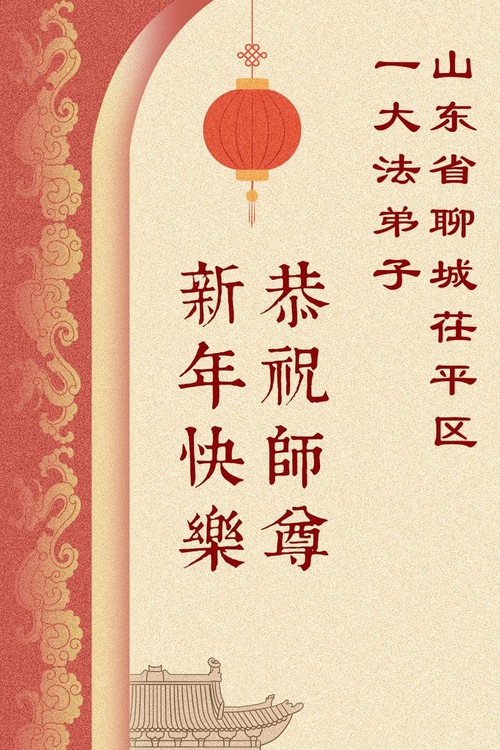 山东省聊城茌平区
一大法弟子
恭祝師尊
新年快樂